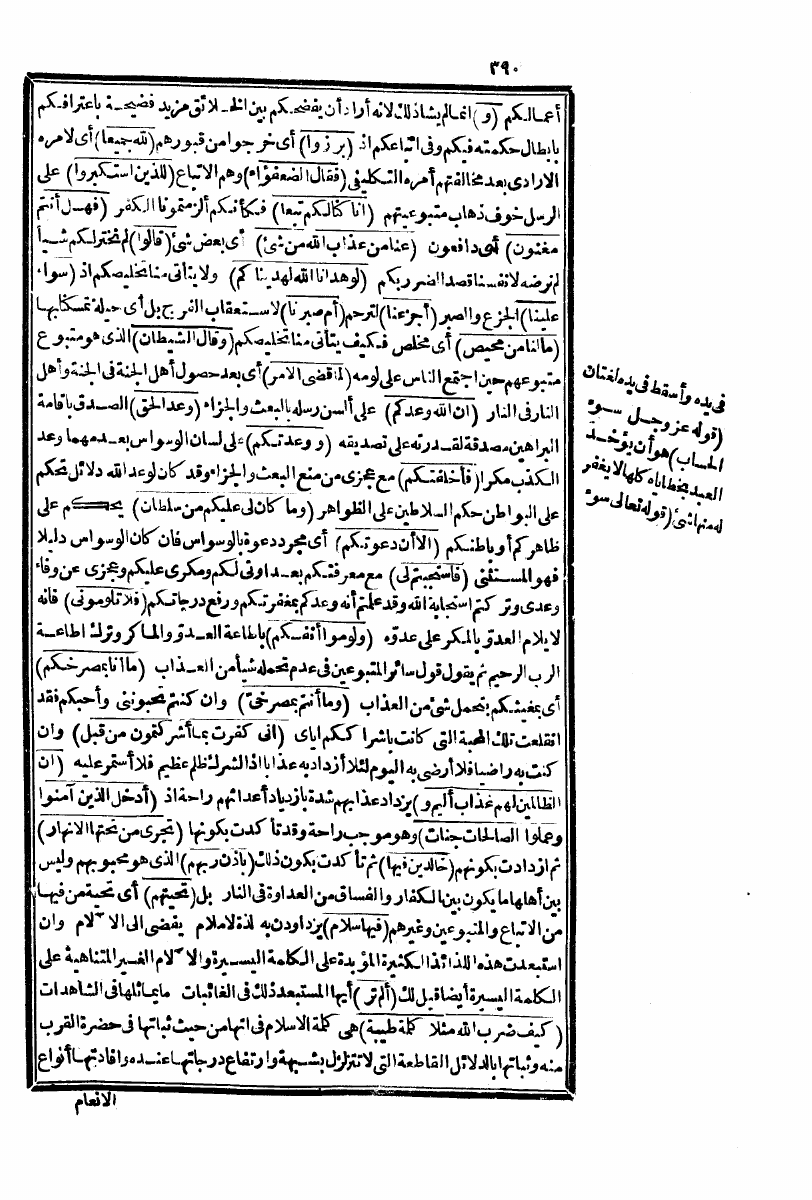 ٣٩٠
أعمالكم (و) انما لم يشأ ذلك لانه أراد أن يفضحكم بين الخلائق مزيد فضيحة باعترافكم
بابطال حكمته فيكم وفى اتباعكم اذ (برزوا) أى خرجوا من قبورهم (لله جميعا) أى لامره
الارادى بعد مخالفتهم أمره التكليفى (فقال الضعفؤا) وهم الاتباع (للذين استكبروا) على
الرسل خوف ذهاب متبوعيتهم (انا كنا لكم تبعا) فكأنكم ألزمتمونا الكفر (فهل أنتم
مغنون) أى دافعون (عنا من عذاب الله من شئ) أى بعض شئ (قالوا) لم نختر لكم شيأ
لم نرضه لانفسنا قصدا لضرركم (لو هدانا الله لهديناكم) ولا يتأتى منا تخليصكم اذ (سواء
علينا) الجزع والصبر (أجزعنا) لترحم (أم صبرنا) لاستعقاب الفرج بل أى حيلة تمسكنا بها
(مالنا من محيص) أى مخلص فكيف يتأتى منا تخليصكم (وقال الشيطان) الذى هو متبوع
متبوعهم حين اجتمع الناس على لومه (لما قضى الامر) أى بعد حصول أهل الجنة فى الجنة وأهل
النار فى النار (ان الله وعدكم) على ألسن رسله بالبعث والجزاء (وعد الحق) الصدق باقامة
البراهين مصدقة لقدرته على تصديقه (ووعدتكم) على لسان الوسواس بعدمهما وعد
الكذب مكرا (فأخلفتكم) مع عجزى من منع البعث والجزاء وقد كان لوعد الله دلائل تحكم
على البواطن حكم السلاطين على الظواهر (وما كان لى عليكم من سلطان) يحكم على
ظاهركم أو باطنكم (الا أن دعوتكم) أى مجرد دعوة بالوسواس فان كان الوسواس دليلا
فهو المستثنى (فاستجبتم لى) مع معرفتكم بعداوتى لكم ومكرى عليكم وعجزى عن وفاء
وعدى وتركتم استجابة الله وقد علمتم أنه وعدكم بمغفرتكم ورفع درجاتكم (فلا تلومونى) فانه
لا يلام العدو بالمكر على عدوه (ولوموا أنفسكم) باطاعة العدو والماكر وترك اطاعة
الرب الرحيم ثم يقول قول سائر المتبوعين فى عدم تحمله شيأ من العذاب (ما أنا بمصرخكم)
أى بمغيثكم بتحمل شئ من العذاب (وما أنتم بمصرخى) وان كنتم تحبوننى وأحبكم فقد
انقلعت تلك المحبة التى كانت باشراككم اياى (انى كفرت بما أشركتمون من قبل) وان
كنت به راضيا فلا أرضى به اليوم لئلا أزداد به عذابا اذ الشرك ظلم عظيم فلا أستمر عليه (ان
الظالمين لهم عذاب أليم و) يزداد عذابهم شدة بازدياد أعدائهم راحة اذ (أدخل الذين آمنوا
وعملوا الصالحات جنات) وهو موجب راحة وقد تأكدت بكونها (تجرى من تحتها الانهار)
ثم ازدادت بكونهم (خالدين فيها) ثم تأكدت بكون ذلك (باذن ربهم) الذى هو محبوبهم وليس
بين أهلها ما يكون بين الكفار والفساق من العداوة فى النار بل (تحيتهم) أى تحية من فيها
من الاتباع والمتبوعين وغيرهم (فيها سلام) يزدادون به لذة لاملام يفضى الى الآلام وان
استبعدت هذه اللذائذ الكثيرة المؤبدة على الكلمة اليسيرة والآلام الغير المتناهية على
الكلمة اليسيرة أيضا قيل لك (ألم تر) أيها المستبعد ذلك فى الغائبات ما يماثلها فى الشاهدات
(كيف ضرب الله مثلا كلمة طيبة) هى كلمة الاسلام فى انها من حيث ثباتها فى حضرة القرب
منه وثباتها بالدلائل القاطعة التى لا تتزلزل بشبهة وارتفاع درجاتها عنده وافادتها أنواع
الانعام
فى يده وأسقط فى يده لغتان
(قوله عز وجل سوء
الحساب) هو أن يؤخذ
العبد بخطاياه كلها لا يغفر
له منها شئ (قوله تعالى سوء